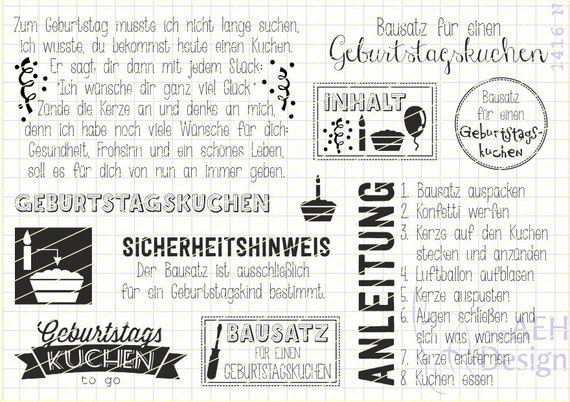 Zum Geburtstag musste ich nicht lange suchen,
ich wusste, du bekommst heute einen Kuchen.
Er sagt dir dann mit jedem Stück:
"Ich wünsche dir ganz viel Glück."
Zünde die Kerze an und denke an mich,
denn ich habe noch viele Wünsche für dich:
Gesundheit, Frohsinn und ein schönes Leben,
soll es für dich von nun an immer geben.
Bausatz für einen
Geburtstagskuchen
1416 N
INHALT
Bausatz
für einen
Geburtstags-
kuchen
GEBURTSTAGSKUCHEN
SICHERHEITSHINWEIS
Der Bausatz ist ausschließlich
für ein Geburtstagskind bestimmt.
ANLEITUNG
1. Bausatz auspacken
2. Konfetti werfen
3. Kerze auf den Kuchen
stecken und anzünden
4. Luftballon aufblasen
5. Kerze auspusten
6. Augen schließen und
sich was wünschen
7. Kerze entfernen
8. Kuchen essen
Geburtstags
KUCHEN
to go
BAUSATZ
FÜR EINEN
GEBURTSTAGSKUCHEN
AEH
Design